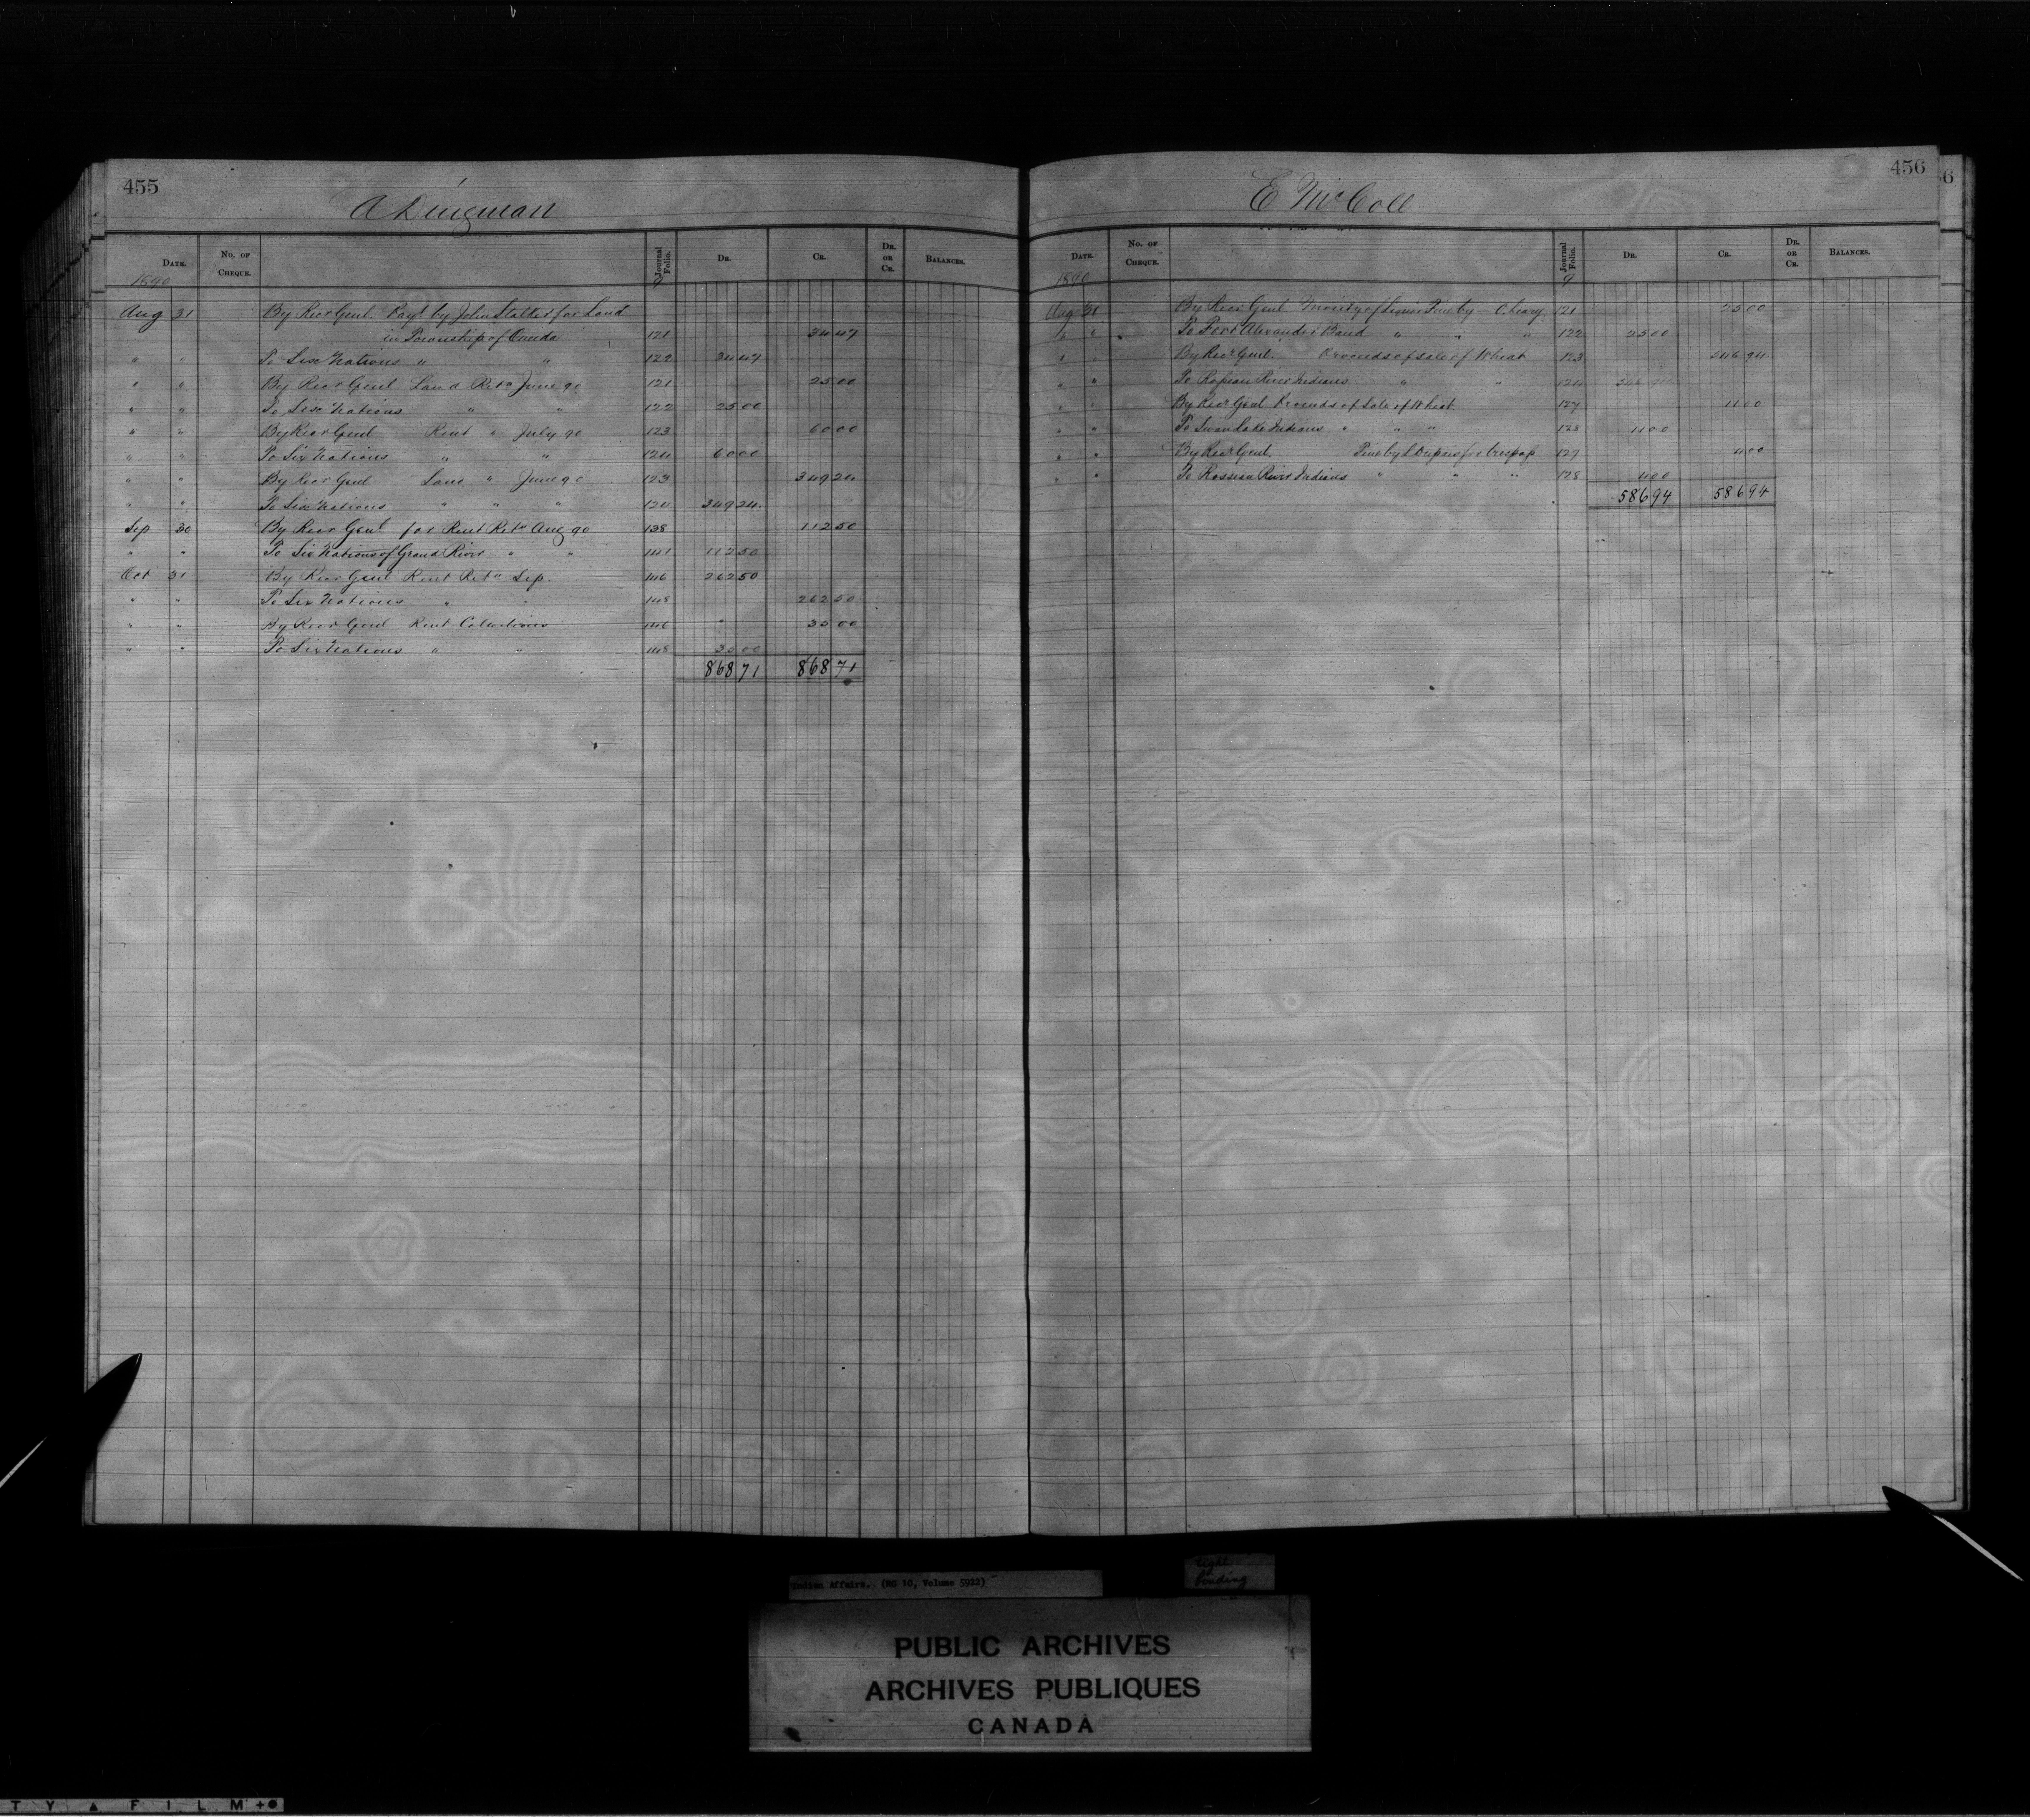 455
A Dingman
DATE. No. OF CHEQUE. Journal Folio. DR. CR. DR. OR CR. BALANCES.
1890 9
Aug 31 By Recr Genl. Payt by John Slatter for Land
in Township of Oneida 121 34 47
" " To Six Nations " " 122 34 47
" " By Recr Genl Land Retn June 90 121 25 00
" " To Six Nations " " 122 25 00
" " By Recr Genl Rent " July 90 123 60 00
" " To Six Nations " " 124 60 00
" " By Recr Genl Land " June 90 123 349 24
" " To Six Nations " " " 124 349 24
Sep 30 By Recr Genl for Rent Retn Aug 90 138 112 50
" " To Six Nations of Grand River " " 141 112 50
Oct 31 By Recr Genl Rent Retn Sep. 146 262 50
" " To Six Nations " " 148 262 50
" " By Recr Genl Rent Collections 146 " 35 00
" " To Six Nations " " 148 35 00
868 71 868 71
456
E McColl
DATE. No. OF CHEQUE. Journal Folio. DR. CR. DR. OR CR. BALANCES.
1890 9
Aug 31 By Recr Genl Moiety of Liquor Fine by — O. Leary 121 25 00
" " To Fort Alexander Band " " " 122 25 00
" " By Recr Genl. Proceeds of sale of Wheat 123 546 94
" " To Roseau River Indians " " 124 546 94
" " By Recr Genl Proceeds of Sale of Wheat 127 11 00
" " To Swan Lake Indians " " " 128 11 00
" " By Recr Genl. Fine by for trespass 127 4 00
" " To Rosseau River Indians " " " 128 4 00
586 94 586 94
Indian Affairs. (RG 10, Volume 5922)
tight binding
PUBLIC ARCHIVES
ARCHIVES PUBLIQUES
CANADA
T Y ▲ F I L M +●